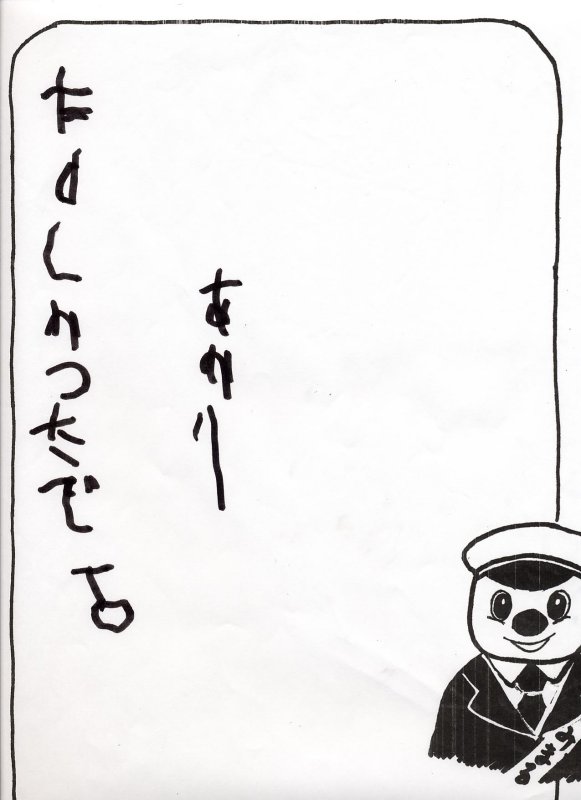 あかり
たのしかったです